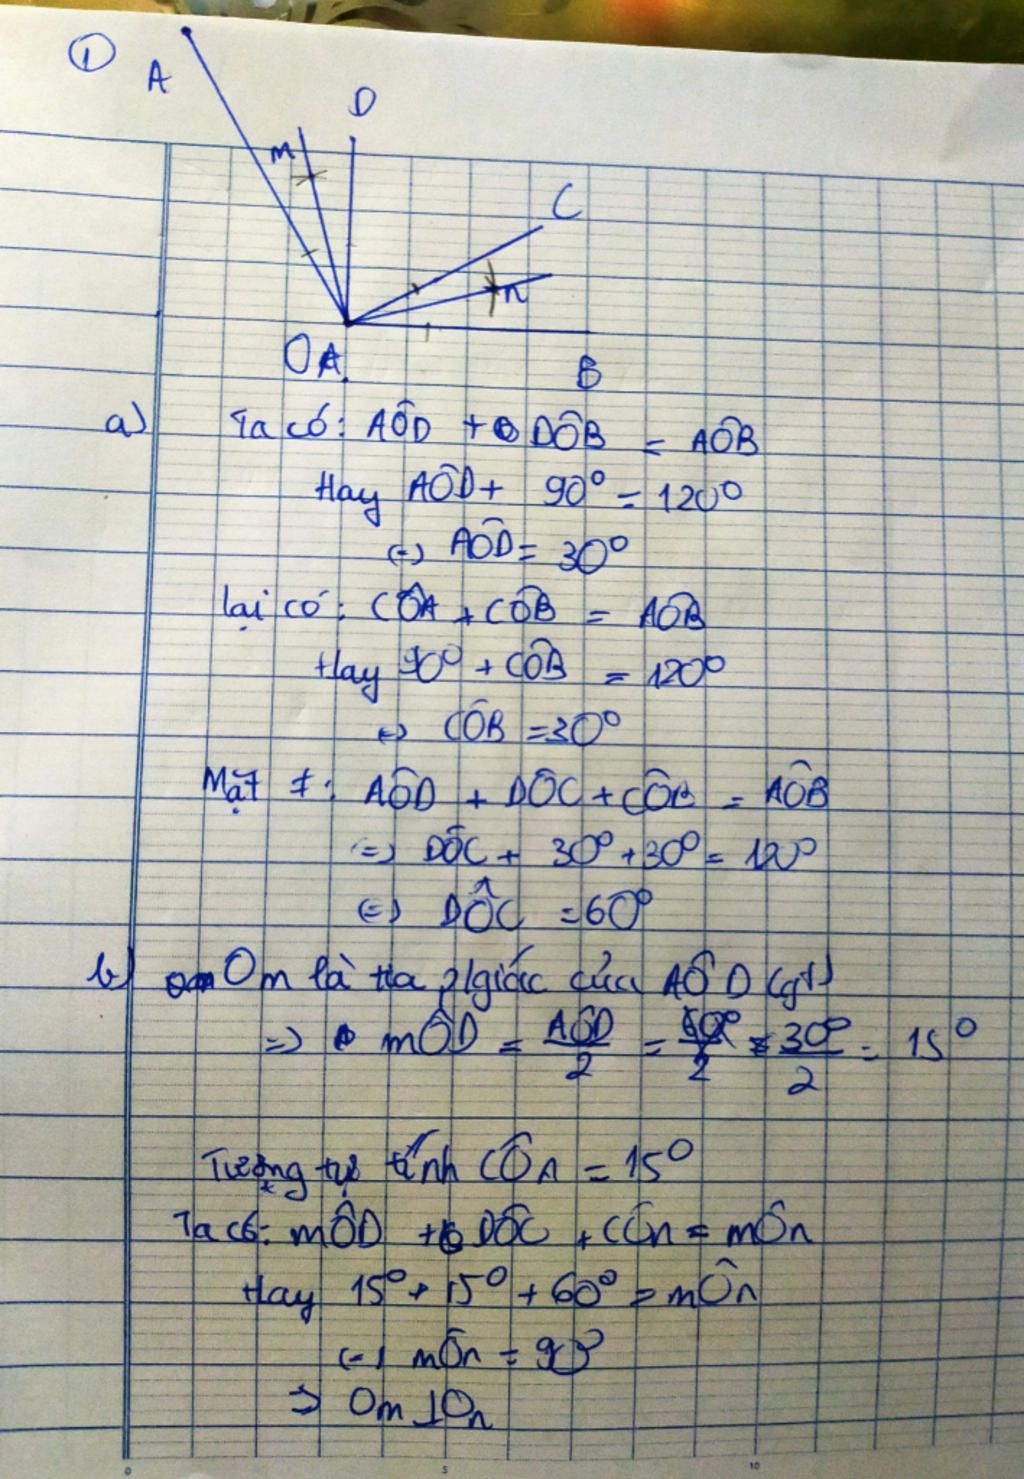 ①
A
D
m
C
n
O
B
a) Ta có: AÔD + DÔB = AÔB
Hay AÔD + 90° = 120°
(=) AÔD = 30°
lại có: CÔA + CÔB = AÔB
Hay 90° + CÔB = 120°
(=) CÔB = 30°
Mặt ≠: AÔD + DÔC + CÔB = AÔB
=) DÔC + 30° + 30° = 120°
(=) DÔC = 60°
b) Om là tia p/giác của AÔD (gt)
=) mÔD = AÔD/2 = 30°/2 = 15°
Tương tự tính CÔn = 15°
Ta có: mÔD + DÔC + CÔn = mÔn
Hay 15° + 15° + 60° = mÔn
(=) mÔn = 90°
=> Om ⊥ On
0 5 10